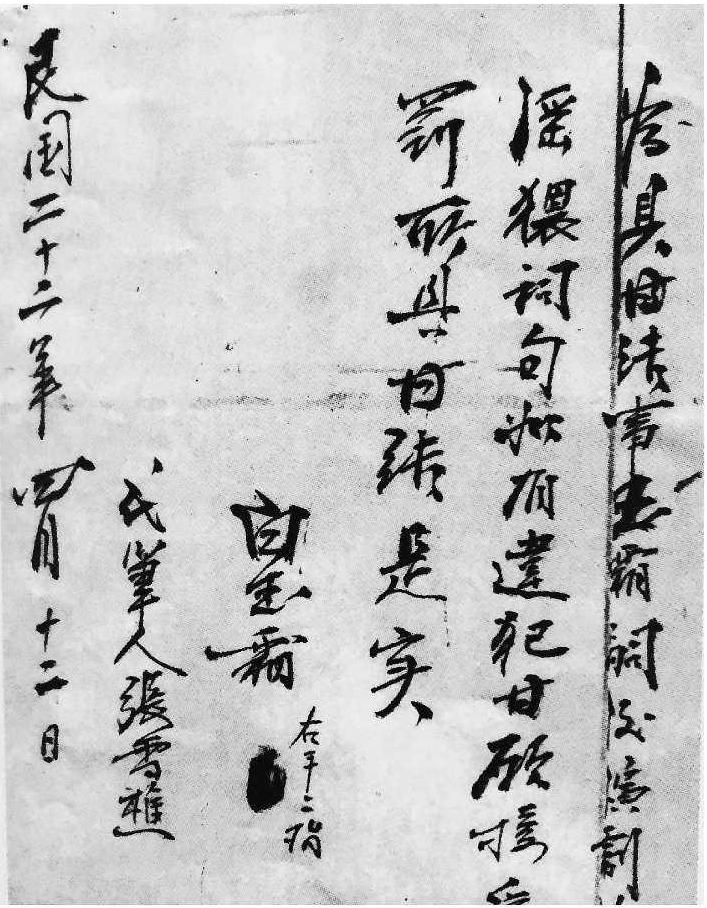 为具甘结事玉霜嗣後演劇
淫猥詞句如有違犯甘願接受
罰所具甘结是实
白玉霜
右手二指
代筆人張雪樵
民国二十二年四月十二日